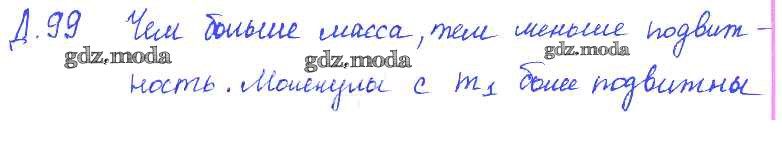 Д.99 Чем больше масса, тем меньше подвиж-
gdz.moda gdz.moda gdz.moda
ность. Молекулы с m₁ более подвижны